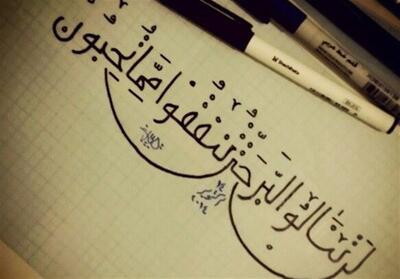 لَن تَنَالُوا الْبِرَّ حَتَّىٰ تُنفِقُوا مِمَّا تُحِبُّونَ
٢٤
٢٠١٤